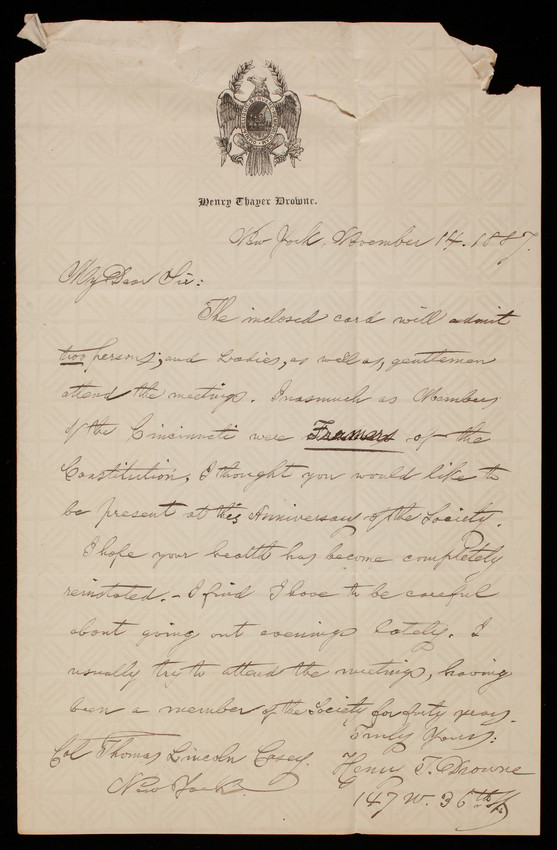 Henry Thayer Drowne.
New York, November 14. 1887.
My Dear Sir:
The inclosed card will admit
two persons; and Ladies, as well as, gentlemen
attend the meetings. Inasmuch as Members
of the Cincinnati were Framers of the
Constitution, I thought you would like to
be present at this Anniversary of the Society.
I hope your health has become completely
reinstated. - I find I have to be careful
about going out evenings lately. I
usually try to attend the meetings, having
been a member of the Society for forty years.
Truly Yours:
Henry T. Drowne
147 W. 36th St
Col Thomas Lincoln Casey.
New York.